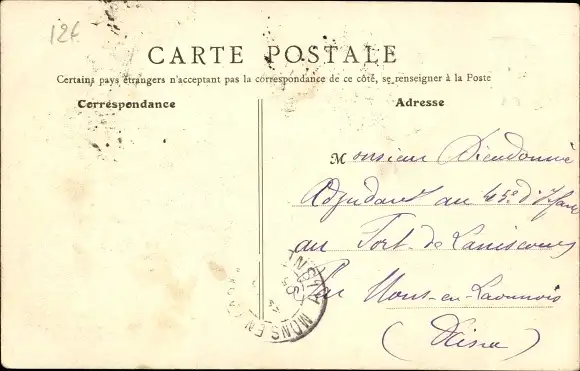 12f
CARTE POSTALE
Certains pays étrangers n'acceptant pas la correspondance de ce côté, se renseigner à la Poste
Correspondance
Adresse
Monsieur Dieudonné
Adjudant au 45e d'Infie
au Fort de Laniscourt
Par Mons-en-Laonnois
(Aisne)
MONS EN